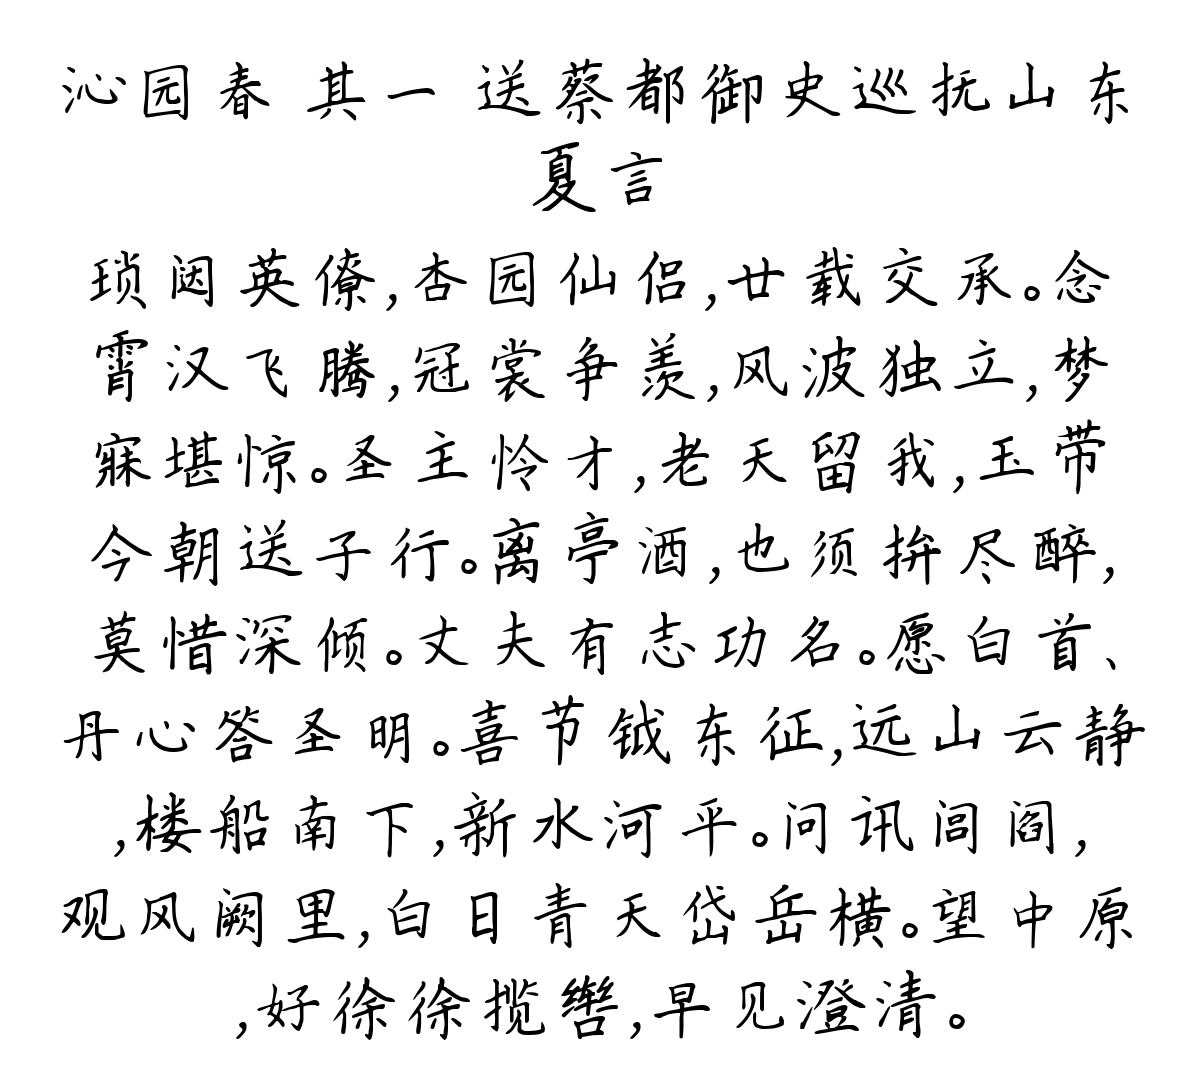 沁园春 其一 送蔡都御史巡抚山东
夏言
琐闼英僚,杏园仙侣,廿载交承。念
霄汉飞腾,冠裳争羡,风波独立,梦
寐堪惊。圣主怜才,老天留我,玉带
今朝送子行。离亭酒,也须拚尽醉,
莫惜深倾。丈夫有志功名。愿白首、
丹心答圣明。喜节钺东征,远山云静
,楼船南下,新水河平。问讯闾阎,
观风阙里,白日青天岱岳横。望中原
,好徐徐揽辔,早见澄清。